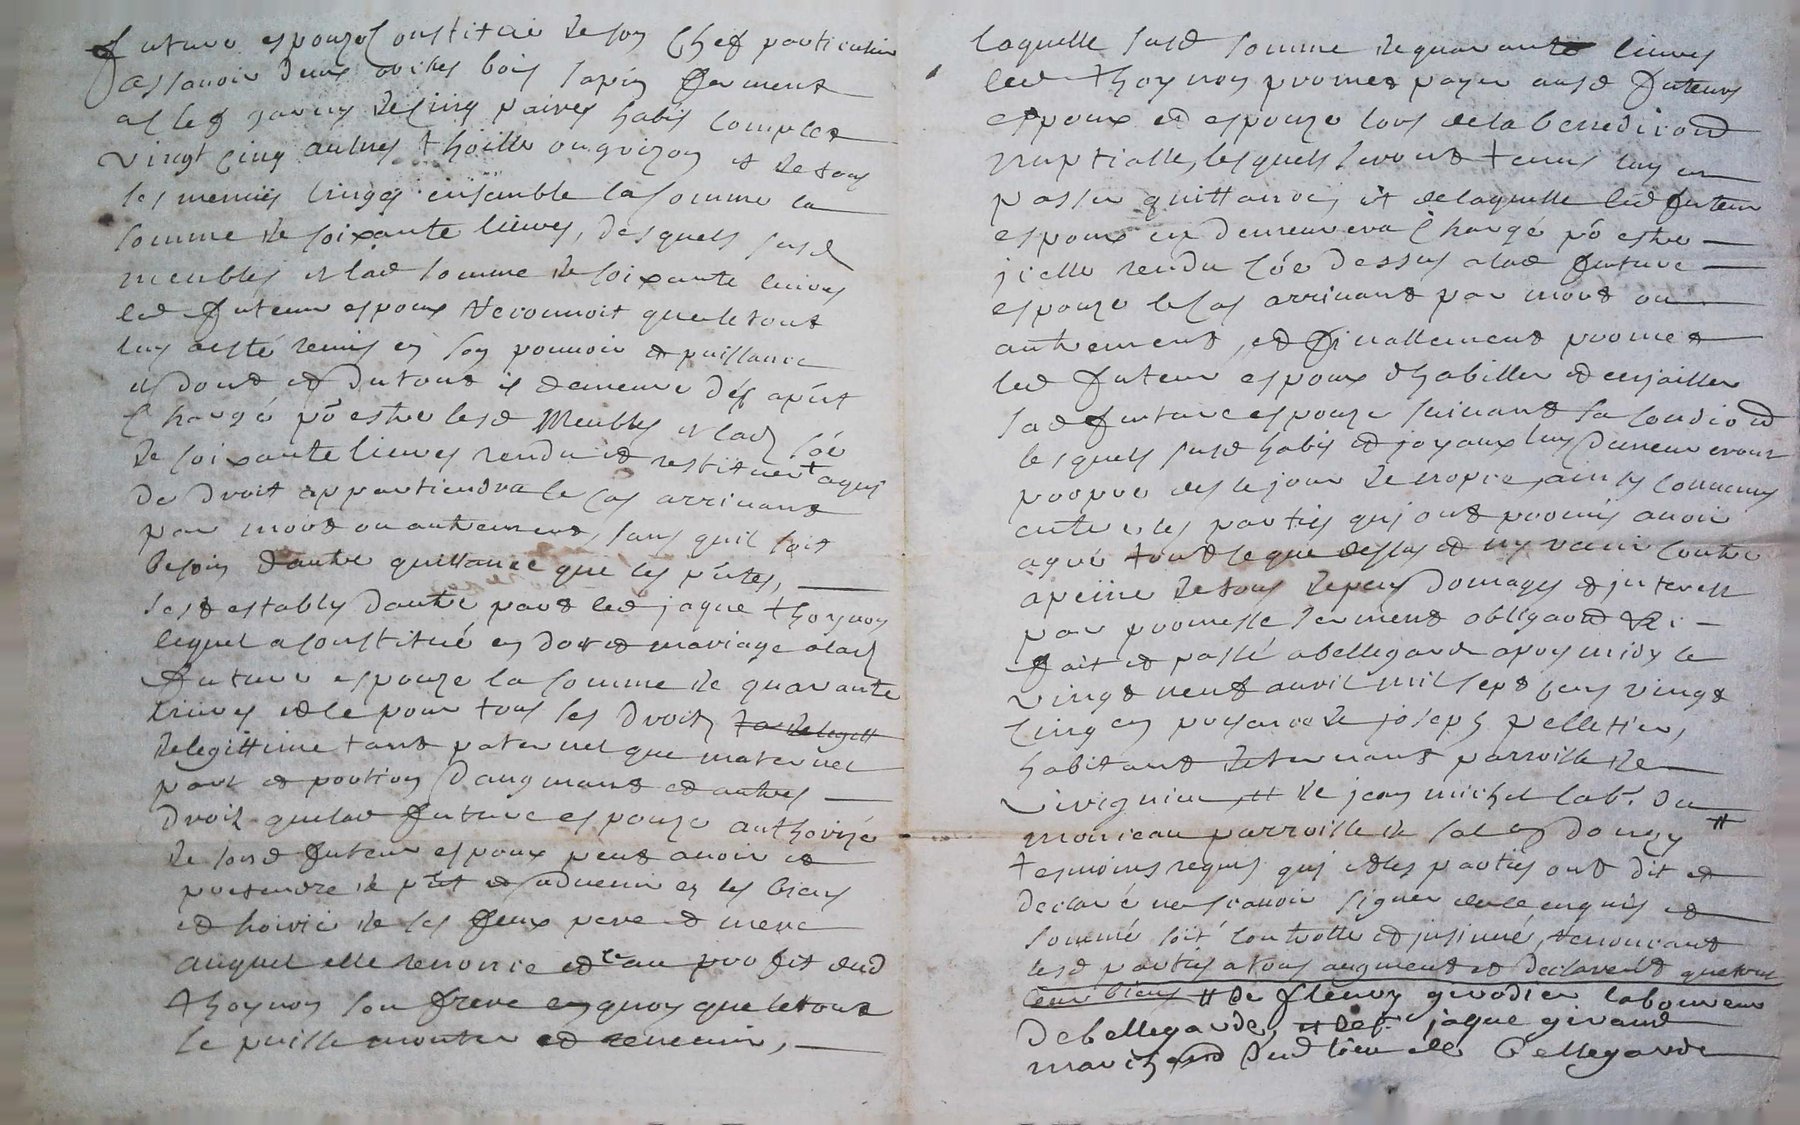 future espouze Constitué de son Chef particulier
assavoir deux arches bois sapin ferment
a clef garny de cinq paires habis complet
vingt cinq aulnes thoille en et de tous
ses menus linges ensemble la somme la
somme de soixante livres, desquels susd
meubles et lad somme de soixante livres
led futeur espoux reconnoit que le tout
luy a esté remis en son pouvoir et puissance
et dont et du tout il demeure dés apñt
Chargé põ estre lesd Meubles et lad sõe
de soixante livres rendu et restituer a qui
de droit appartiendra le cas arrivant
par mort ou autrement, sans quil soit
besoin dautre quittance que ces pñtes,
sest estably dautre part led jaque thoynon
lequel a constitué en dot et mariage a lad
future espouze la somme de quarante
livres et ce pour tous ses droits
de legittime tant paternel que maternel
part et portion daugmant et autres
droit que lad future espouze authorizé
de sond futeur espoux peut avoir et
pretendre de pñt et advenir en les biens
et hoirie de ses feux pere et mere
auquel elle renonce et ce au proffit dud
thoynon son frere en quoy que le tout
se puisse monter et revenir,
laquelle susd somme de quarante livres
led thoynon promet payer ausd futeurs
espoux et espouze lors de la benediction
nuptialle, lesquels seront tenus luy en
passer quittance, et de laquelle led futeur
espoux en demeurera Chargé põ estre
jcelle rendu cõe dessus a lad future
espouze le cas arrivant par mort ou
autrement, et finallement promet
led futeur espoux dhabiller et enjoailler
sad future espouze suivant sa condicion
lesquels susd habis et joyaux luy demeureront
propre des le jour de nopce, ainsy convenus
entre les parties qui ont promis avoir
agreé tout le que dessus et ny venir contre
a peine de tous despens domages et jnterest
par promesse serment obligaõn &
fait et passé a bellegarde apres midy le
vingt neuf avril mil sept cens vingt
cinq en presence de joseph pelletier,
habitant parroisse de
Virignieu, et de jean michel lab.r du
monceau parroisse de salt en donzy #
tesmoins requis qui et les parties ont dit et
declaré ne scavoir signer de ce enquis et
sommé soit controllé et jnsinué, renoncant
lesd parties a tous augment et declarent que tous
leur biens # de fleury girodier laboureur
de bellegarde, et de s.r jaque giraud
marchand dud lieu de Bellegarde